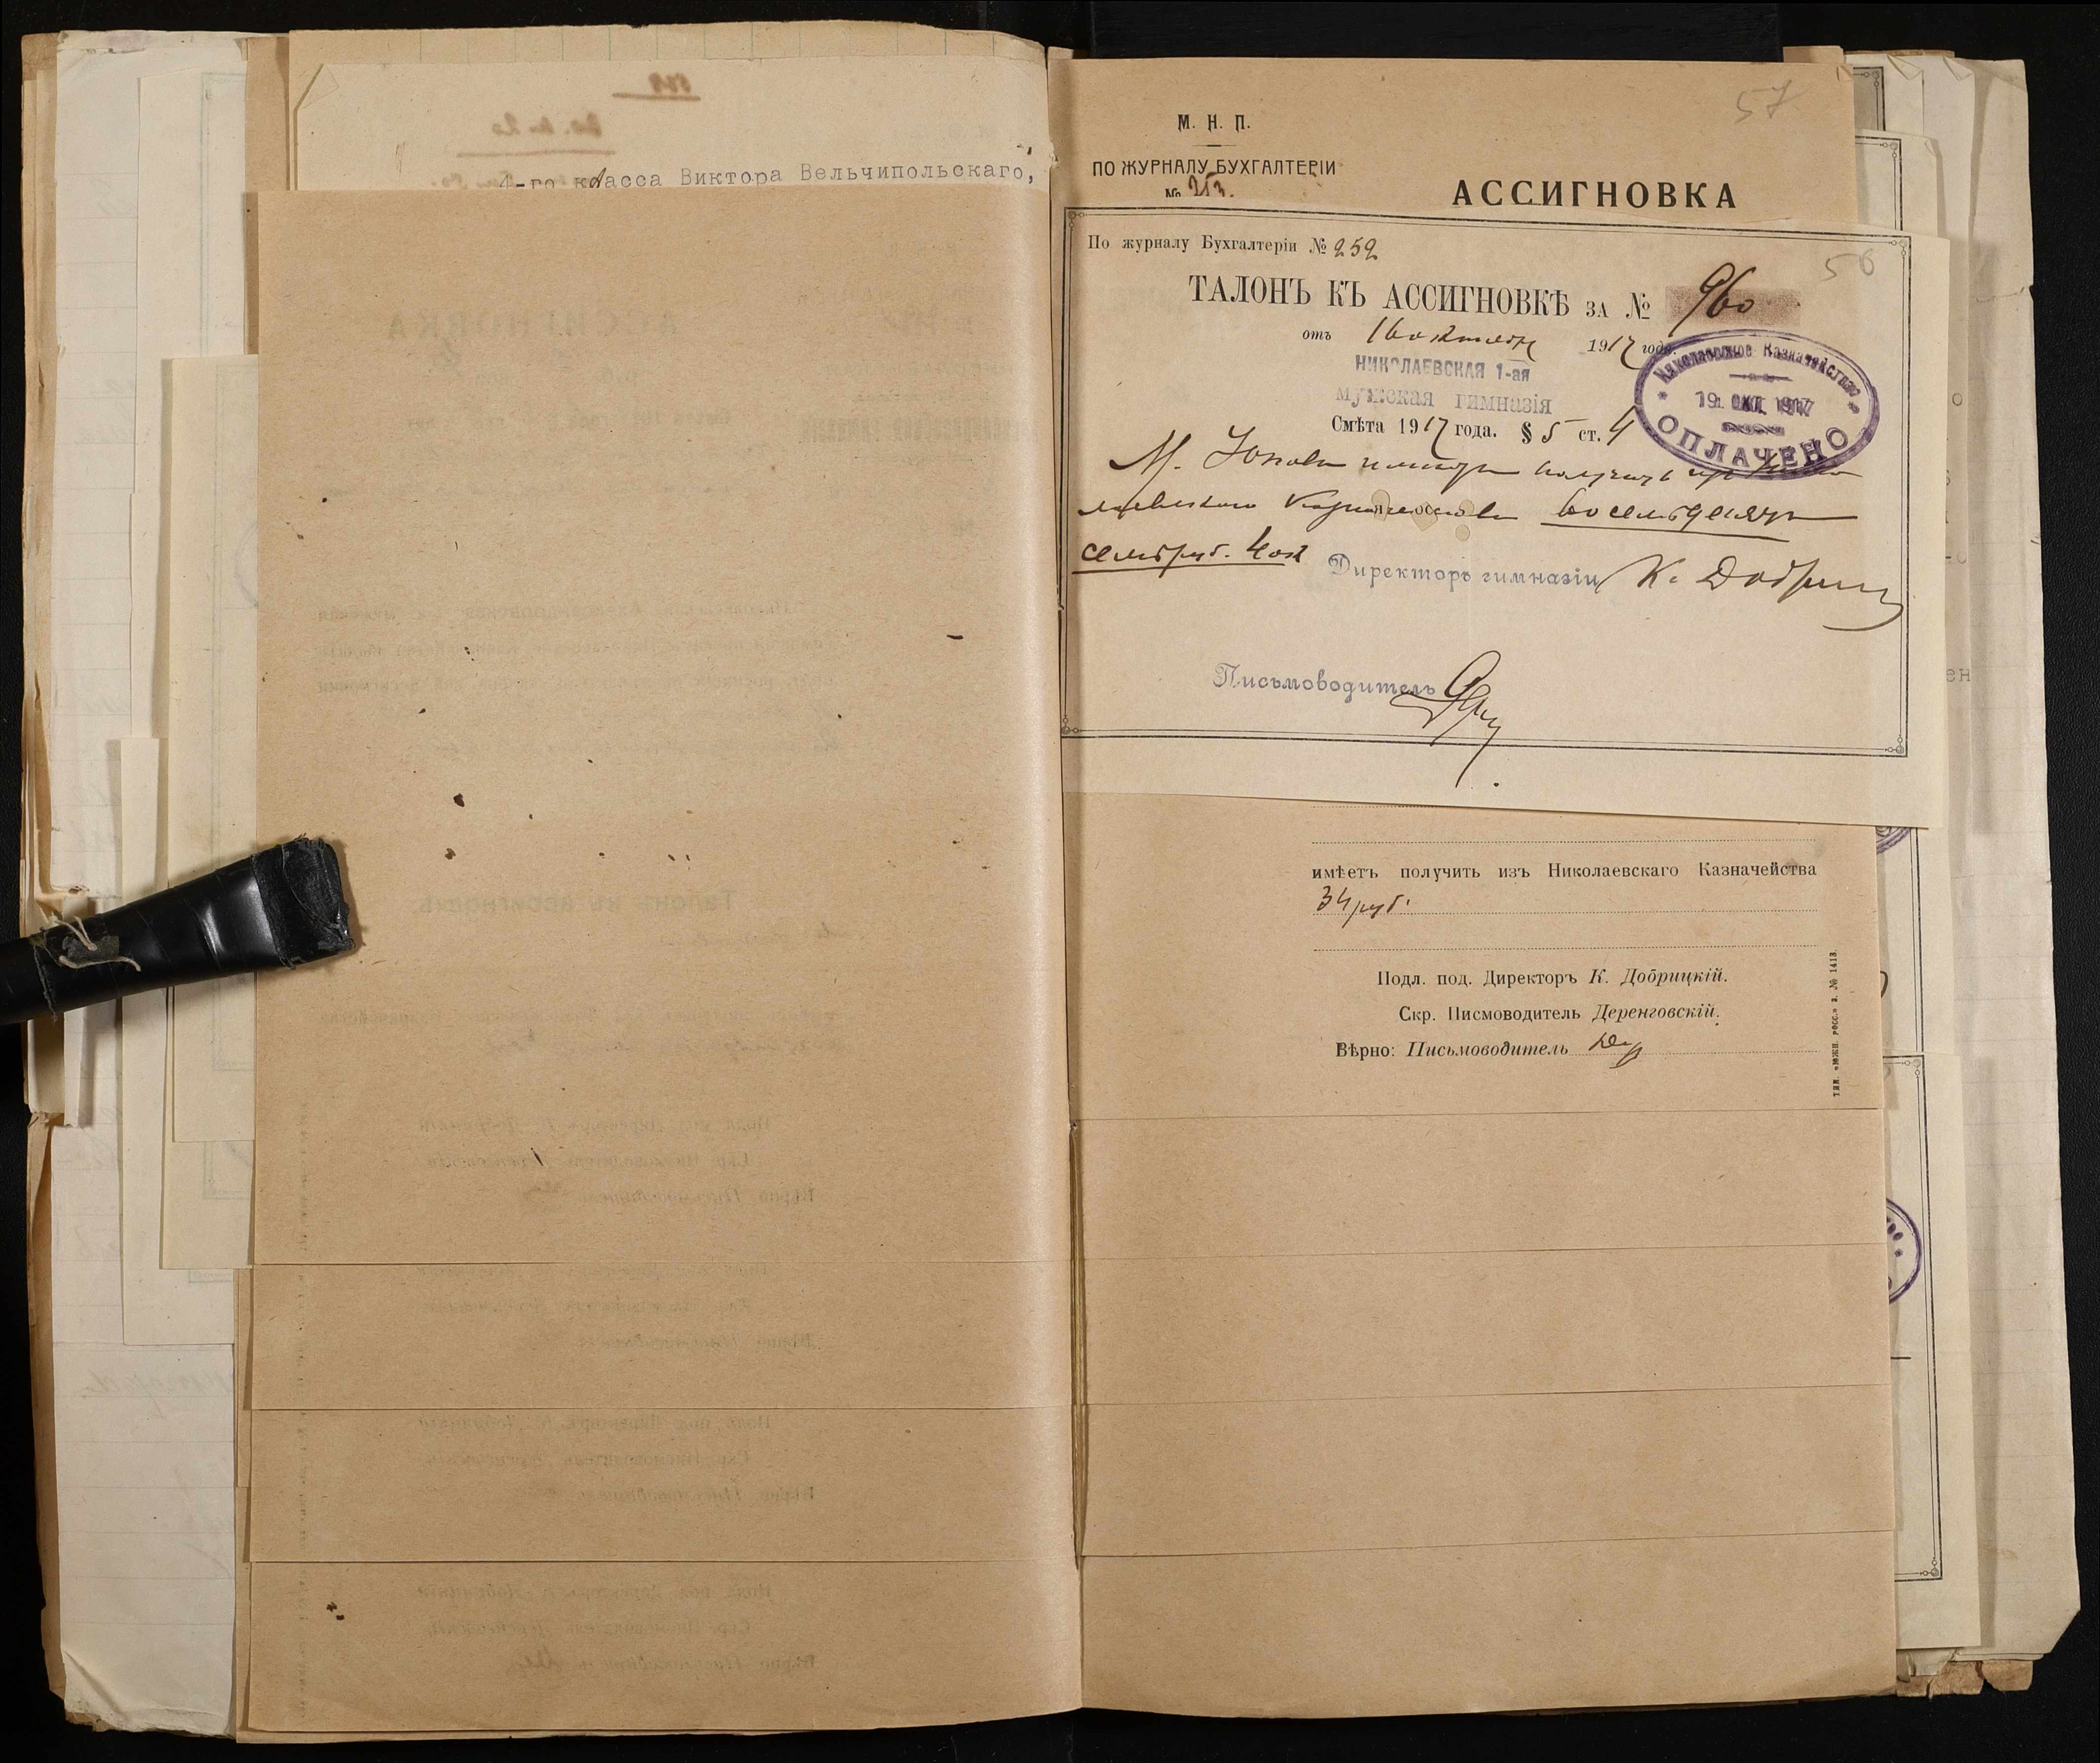 4-го класса Виктора Вельчипольскаго,
57
М. Н. П.
ПО ЖУРНАЛУ БУХГАЛТЕРІИ
№ 253.
АССИГНОВКА
56
По журналу Бухгалтеріи № 252
ТАЛОНЪ КЪ АССИГНОВКѢ ЗА № 960
отъ 16 октября 1917 года.
НИКОЛАЕВСКАЯ 1-ая
мужская гимназія
Николаевское Казначейство
19 ОКТ. 1917
ОПЛАЧЕНО
Смѣта 1917 года. § 5 ст. 4
М. имѣетъ получить изъ Нико
лаевскаго Казначейства восемьдесятъ
семь руб. 4 коп
Директоръ гимназіи К. Добрицкій
Письмоводитель
имѣетъ получить изъ Николаевскаго Казначейства
34 руб.
Подл. под. Директоръ К. Добрицкій.
Скр. Писмоводитель Деренговскій.
Вѣрно: Письмоводитель
ТИП. «ЮЖН. РОСС.» З. № 1413.